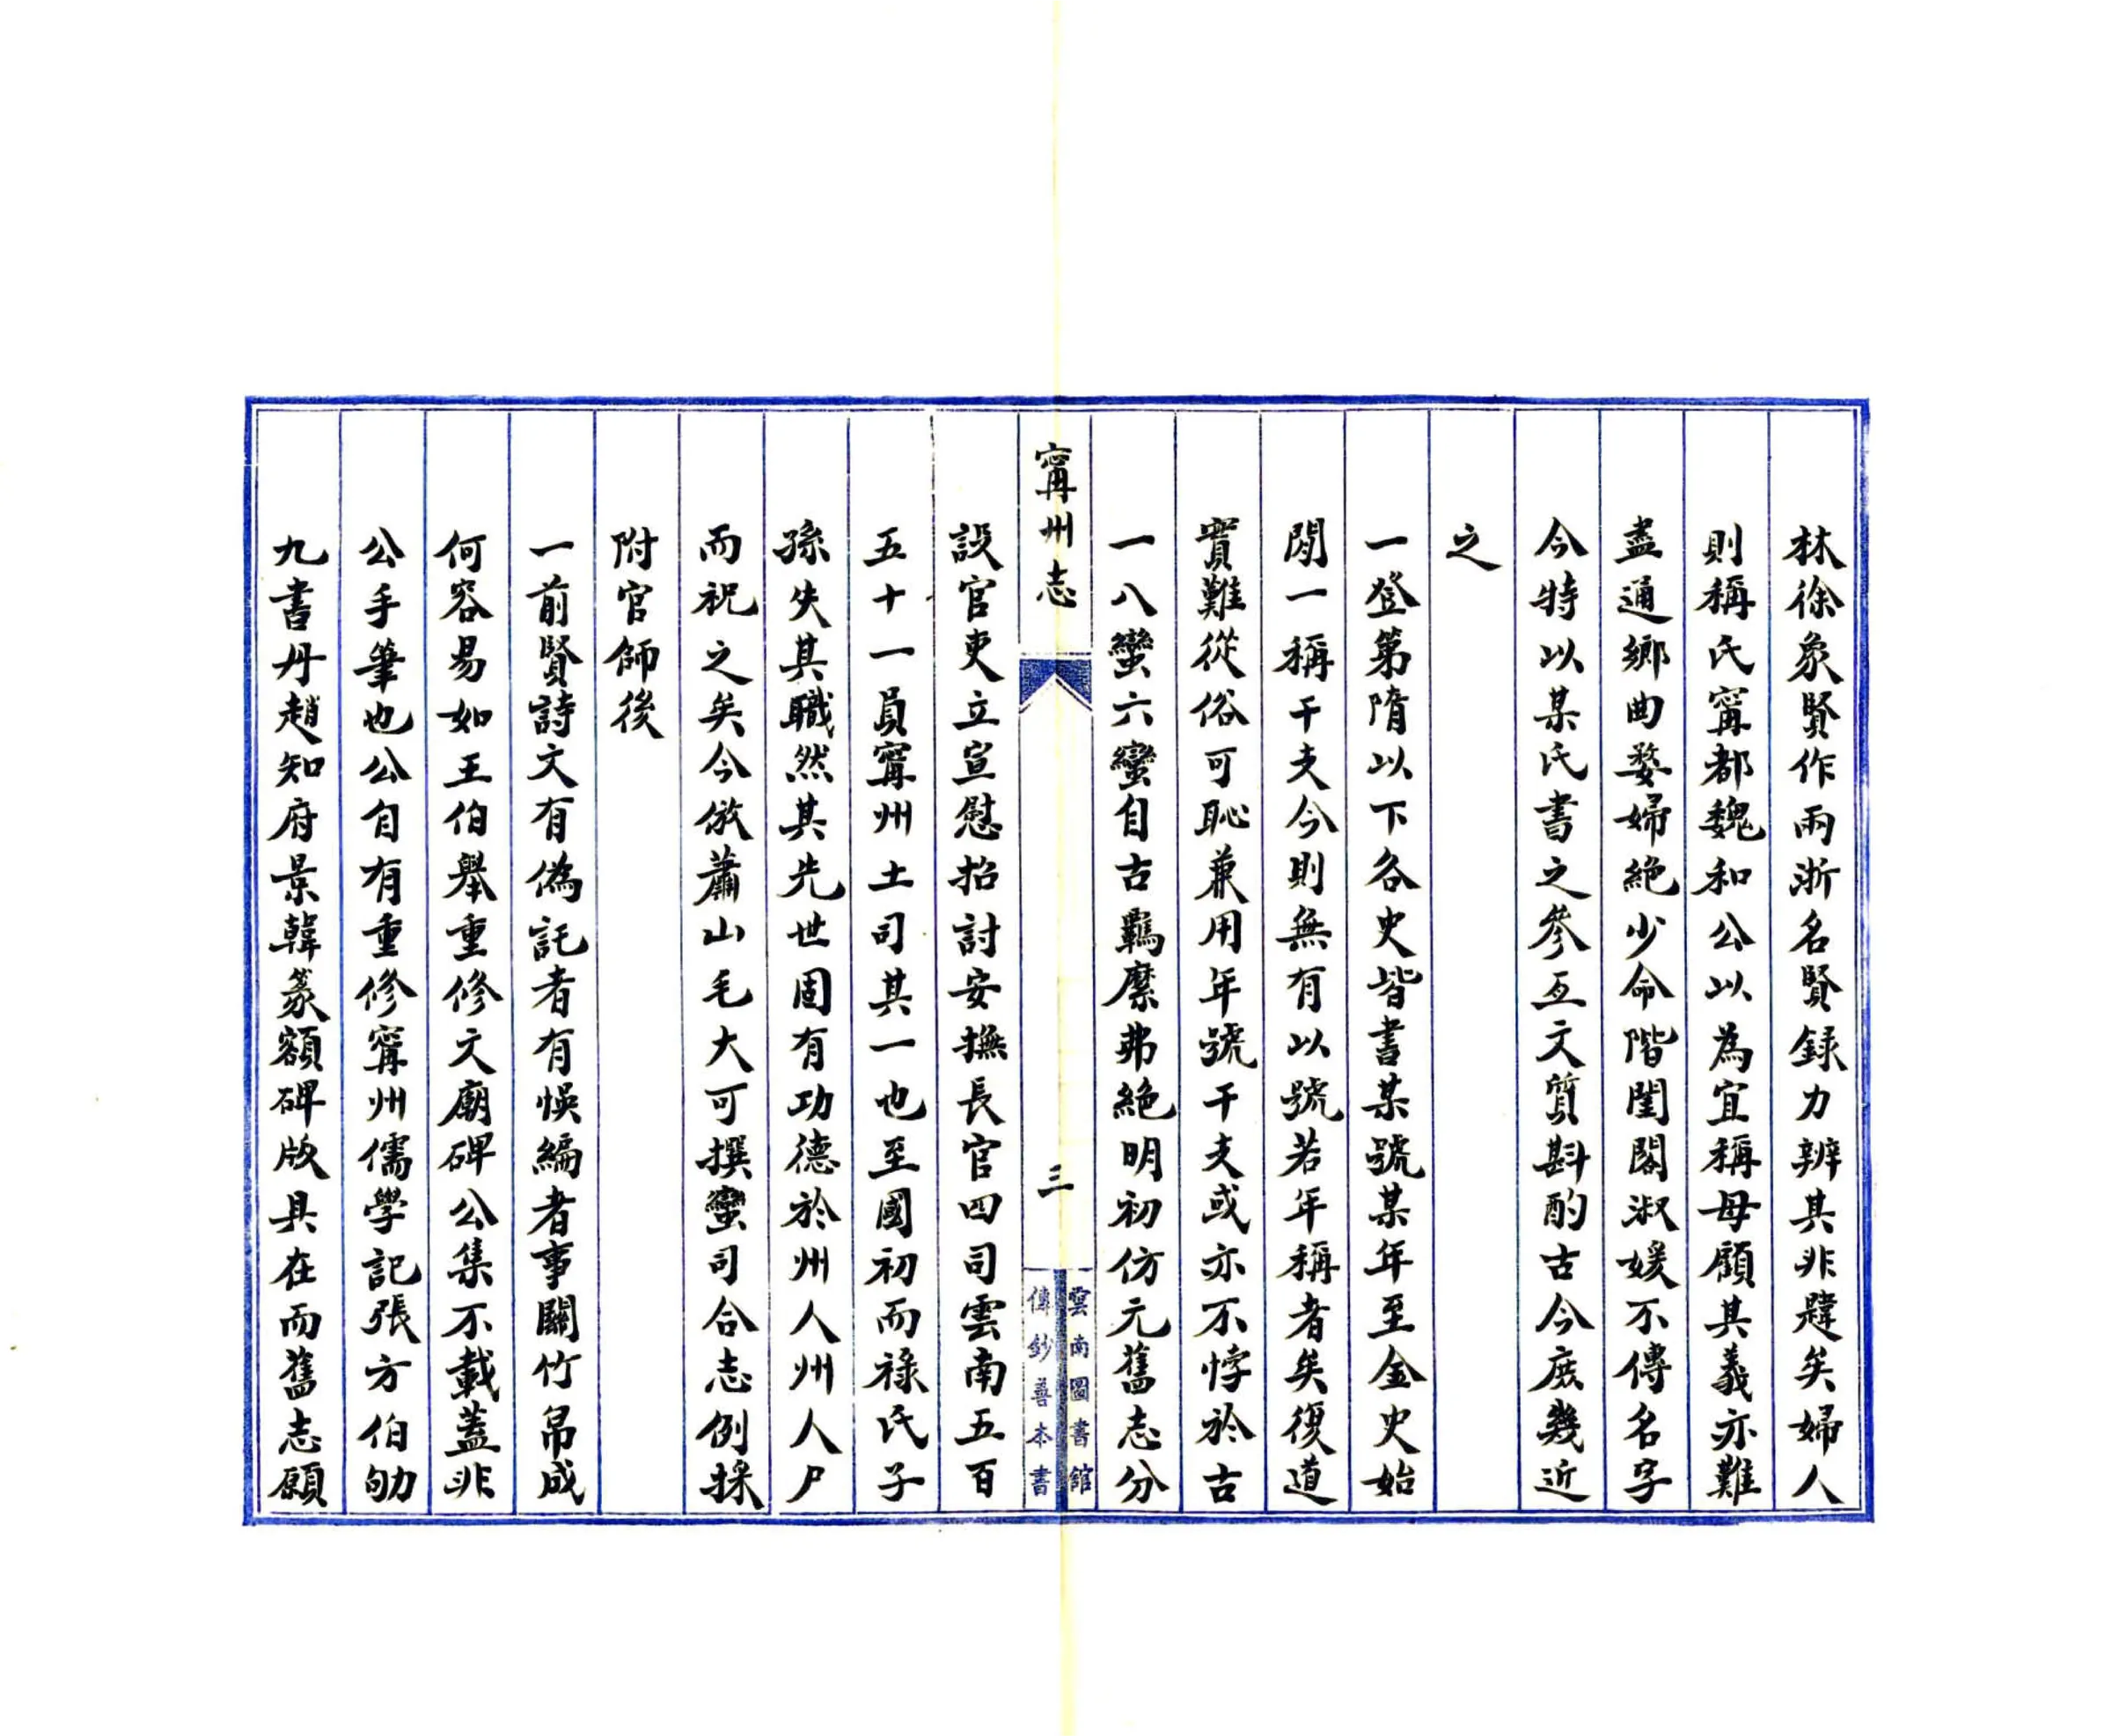 林徐象賢作兩浙名賢録力辨其非韙矣婦人
則稱氏寗都魏和公以為宜稱母顧其義亦難
盡通鄉曲婺婦絕少命階閨閣淑媛不傳名字
今特以某氏書之參互文質斟酌古今庶幾近
之
一登第隋以下各史皆書某號某年至金史始
閒一稱干支今則無有以號若年稱者矣復道
實難從俗可恥兼用年號干支或亦不悖於古
一八蠻六蠻自古羈縻弗絕明初仿元舊志分
寗州志
三
雲南圖書館
傳鈔善本書
設官吏立宣慰招討安撫長官四司雲南五百
五十一員寗州土司其一也至國初而祿氏子
孫失其職然其先世固有功德於州人州人尸
而祝之矣今倣蕭山毛大可撰蠻司合志例採
附官師後
一前賢詩文有偽託者有悞編者事關竹帛成
何容易如王伯舉重修文廟碑公集不載蓋非
公手筆也公自有重修寗州儒學記張方伯劬
九書丹趙知府景韓篆額碑版具在而舊志願